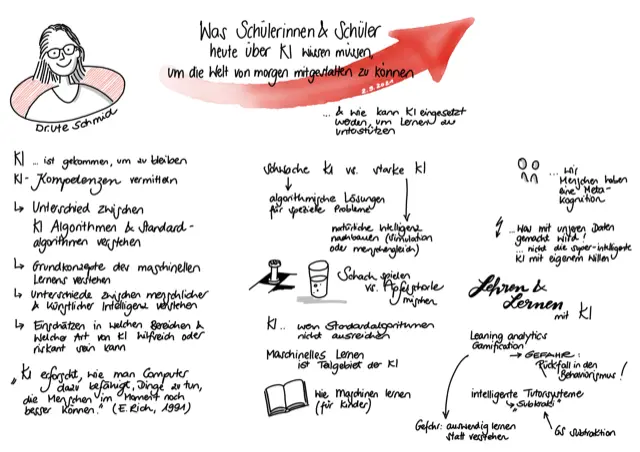 Was Schülerinnen & Schüler
heute über KI wissen müssen,
um die Welt von morgen mitgestalten zu können
2.9.2021
Dr. Ute Schmid
... & wie kann KI eingesetzt
werden, um Lernen zu
unterstützen
KI ... ist gekommen, um zu bleiben
KI-Kompetenzen vermitteln
↳ Unterschied zwischen
KI Algorithmen & Standard-
algorithmen verstehen
↳ Grundkonzepte des maschinellen
Lernens verstehen
↳ Unterschiede zwischen menschlicher
& künstlicher Intelligenz verstehen
↳ Einschätzen in welchen Bereichen &
welcher Art von KI hilfreich oder
riskant sein kann
„KI erforscht, wie man Computer
dazu befähigt, Dinge zu tun,
die Menschen im Moment noch
besser können." (E. Rich, 1991)
Schwache KI vs. starke KI
algorithmische Lösungen
für spezielle Probleme
natürliche Intelligenz
nachbauen (Simulation
oder menschengleich)
Schach spielen
vs. Apfelschorle
mischen
KI... wenn Standardalgorithmen
nicht ausreichen
Maschinelles Lernen
ist Teilgebiet der KI
Wie Maschinen lernen
(für Kinder)
... wir
Menschen haben
eine Meta-
kognition
... Was mit unseren Daten
gemacht wird!
... nicht die super-intelligente
KI mit eigenem Willen
Lehren &
Lernen
mit KI
Learning analytics
Gamification
→ GEFAHR:
Rückfall in den
Behaviorismus!
intelligente Tutorsysteme
↳ "Subkraki"
GS Subtraktion
Gefahr: auswendig lernen
statt verstehen